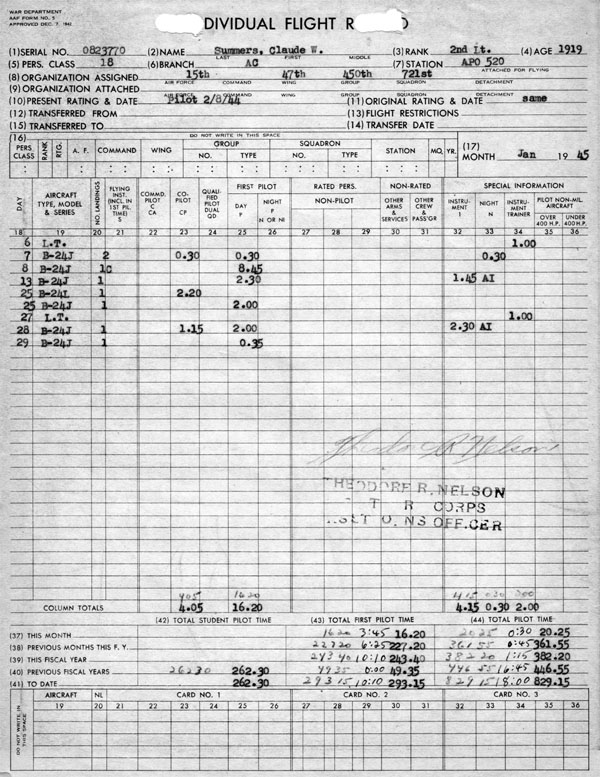 WAR DEPARTMENT
AAF FORM NO. 5
APPROVED DEC. 7, 1942
DIVIDUAL FLIGHT R D
(1) SERIAL NO. 0823770 (2) NAME Summers, Claude W. (3) RANK 2nd Lt. (4) AGE 1919
LAST FIRST MIDDLE
(5) PERS. CLASS 18 (6) BRANCH AC (7) STATION APO 520
(8) ORGANIZATION ASSIGNED 15th 47th 450th 721st ATTACHED FOR FLYING
AIR FORCE COMMAND WING GROUP SQUADRON DETACHMENT
(9) ORGANIZATION ATTACHED
AIR FORCE COMMAND WING GROUP SQUADRON DETACHMENT
(10) PRESENT RATING & DATE Pilot 2/8/44 (11) ORIGINAL RATING & DATE same
(12) TRANSFERRED FROM (13) FLIGHT RESTRICTIONS
(15) TRANSFERRED TO (14) TRANSFER DATE
(16) DO NOT WRITE IN THIS SPACE
PERS. CLASS RANK RTG. A. F. COMMAND WING GROUP NO. TYPE SQUADRON NO. TYPE STATION MO. YR. (17) MONTH Jan 19 45
DAY AIRCRAFT TYPE, MODEL & SERIES NO. LANDINGS FLYING INST. (INCL. IN 1ST PIL. TIME) S COMMD. PILOT C CA CO-PILOT CP QUALI-FIED PILOT DUAL QD FIRST PILOT DAY P NIGHT P N OR NI RATED PERS. NON-PILOT NON-RATED OTHER ARMS & SERVICES OTHER CREW & PASS'GR SPECIAL INFORMATION INSTRU-MENT I NIGHT N INSTRU-MENT TRAINER PILOT NON-MIL. AIRCRAFT OVER 400 H.P. UNDER 400 H.P.
18 19 20 21 22 23 24 25 26 27 28 29 30 31 32 33 34 35 36
6 L.T. 1.00
7 B-24J 2 0.30 0.30 0.30
8 B-24J 1C 8.45
13 B-24J 1 2.30 1.45 AI
25 B-24L 1 2.20
25 B-24J 1 2.00
27 L.T. 1.00
28 B-24J 1 1.15 2.00 2.30 AI
29 B-24J 1 0.35
Theodore R Nelson
THEODORE R. NELSON
R CORPS
NS OFFICER
405 1620 415 030 200
COLUMN TOTALS 4.05 16.20 4.15 0.30 2.00
(42) TOTAL STUDENT PILOT TIME (43) TOTAL FIRST PILOT TIME (44) TOTAL PILOT TIME
(37) THIS MONTH 1620 3:45 16.20 2025 0:30 20.25
(38) PREVIOUS MONTHS THIS F. Y. 22720 6:25 227.20 36155 0:45 361.55
(39) THIS FISCAL YEAR 24340 10:10 243.40 38220 1:15 382.20
(40) PREVIOUS FISCAL YEARS 26230 262.30 4935 0:00 49.35 44655 16:45 446.55
(41) TO DATE 262.30 29315 10:10 293.15 82915 18:00 829.15
DO NOT WRITE IN THIS SPACE AIRCRAFT NL CARD NO. 1 CARD NO. 2 CARD NO. 3
19 20 21 22 23 24 25 26 27 28 29 30 31 32 33 34 35 36